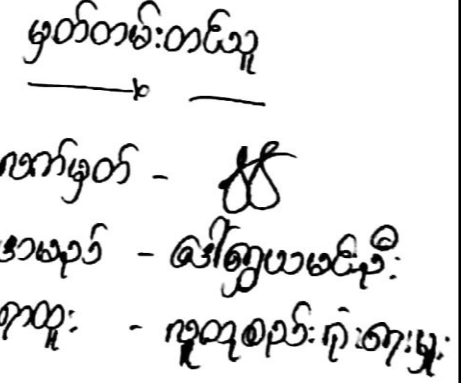 မှတ်တမ်းတင်သူ
လက်မှတ် -
အမည် - ဒေါ်ရွှေယမင်းဦး
ရာထူး - လူထုစည်းရုံးရေးမှူး